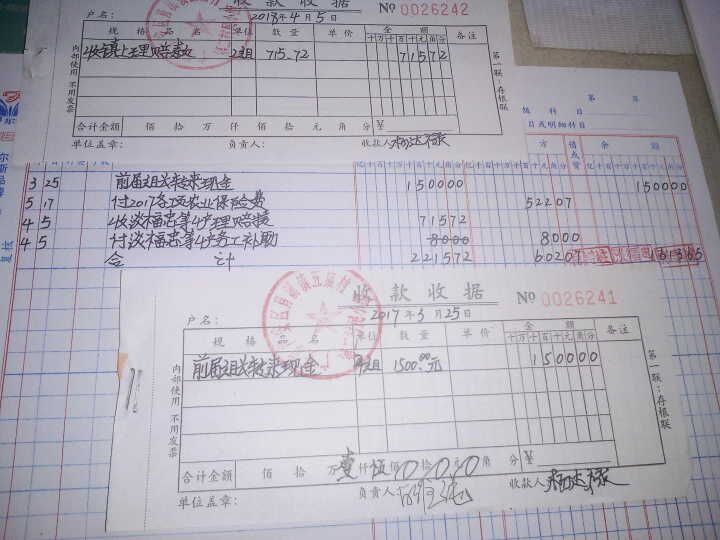 收款收据
№ 0026242
户名：
2018年4月5日
规格品名 单位 数量 单价 金额 备注
十万千百十元角分
2组 715.72 71572
内部使用 不用发票
第一联：存根联
合计金额 佰 拾 万 仟 佰 拾 元 角 分 ¥
单位盖章： 负责人： 收款人
第 年
组 科目
日或明细科目
方 借或贷 余额
3 25 前届组长转来现金 150000 150000
5 17 付2017各项农业保险费 52207
4 5 收淡福忠等4户理赔款 71572
4 5 付淡福忠等4户务工补助 8000 8000
合计 221572 60207 161365
复核
收款收据
№ 0026241
户名：
2017年3月25日
规格品名 单位 数量 单价 金额 备注
十万千百十元角分
前届组长转来现金 1500.00元 150000
内部使用 不用发票
第一联：存根联
合计金额 佰 拾 万壹仟伍佰0拾0元0角 分 ¥
单位盖章： 负责人 收款人